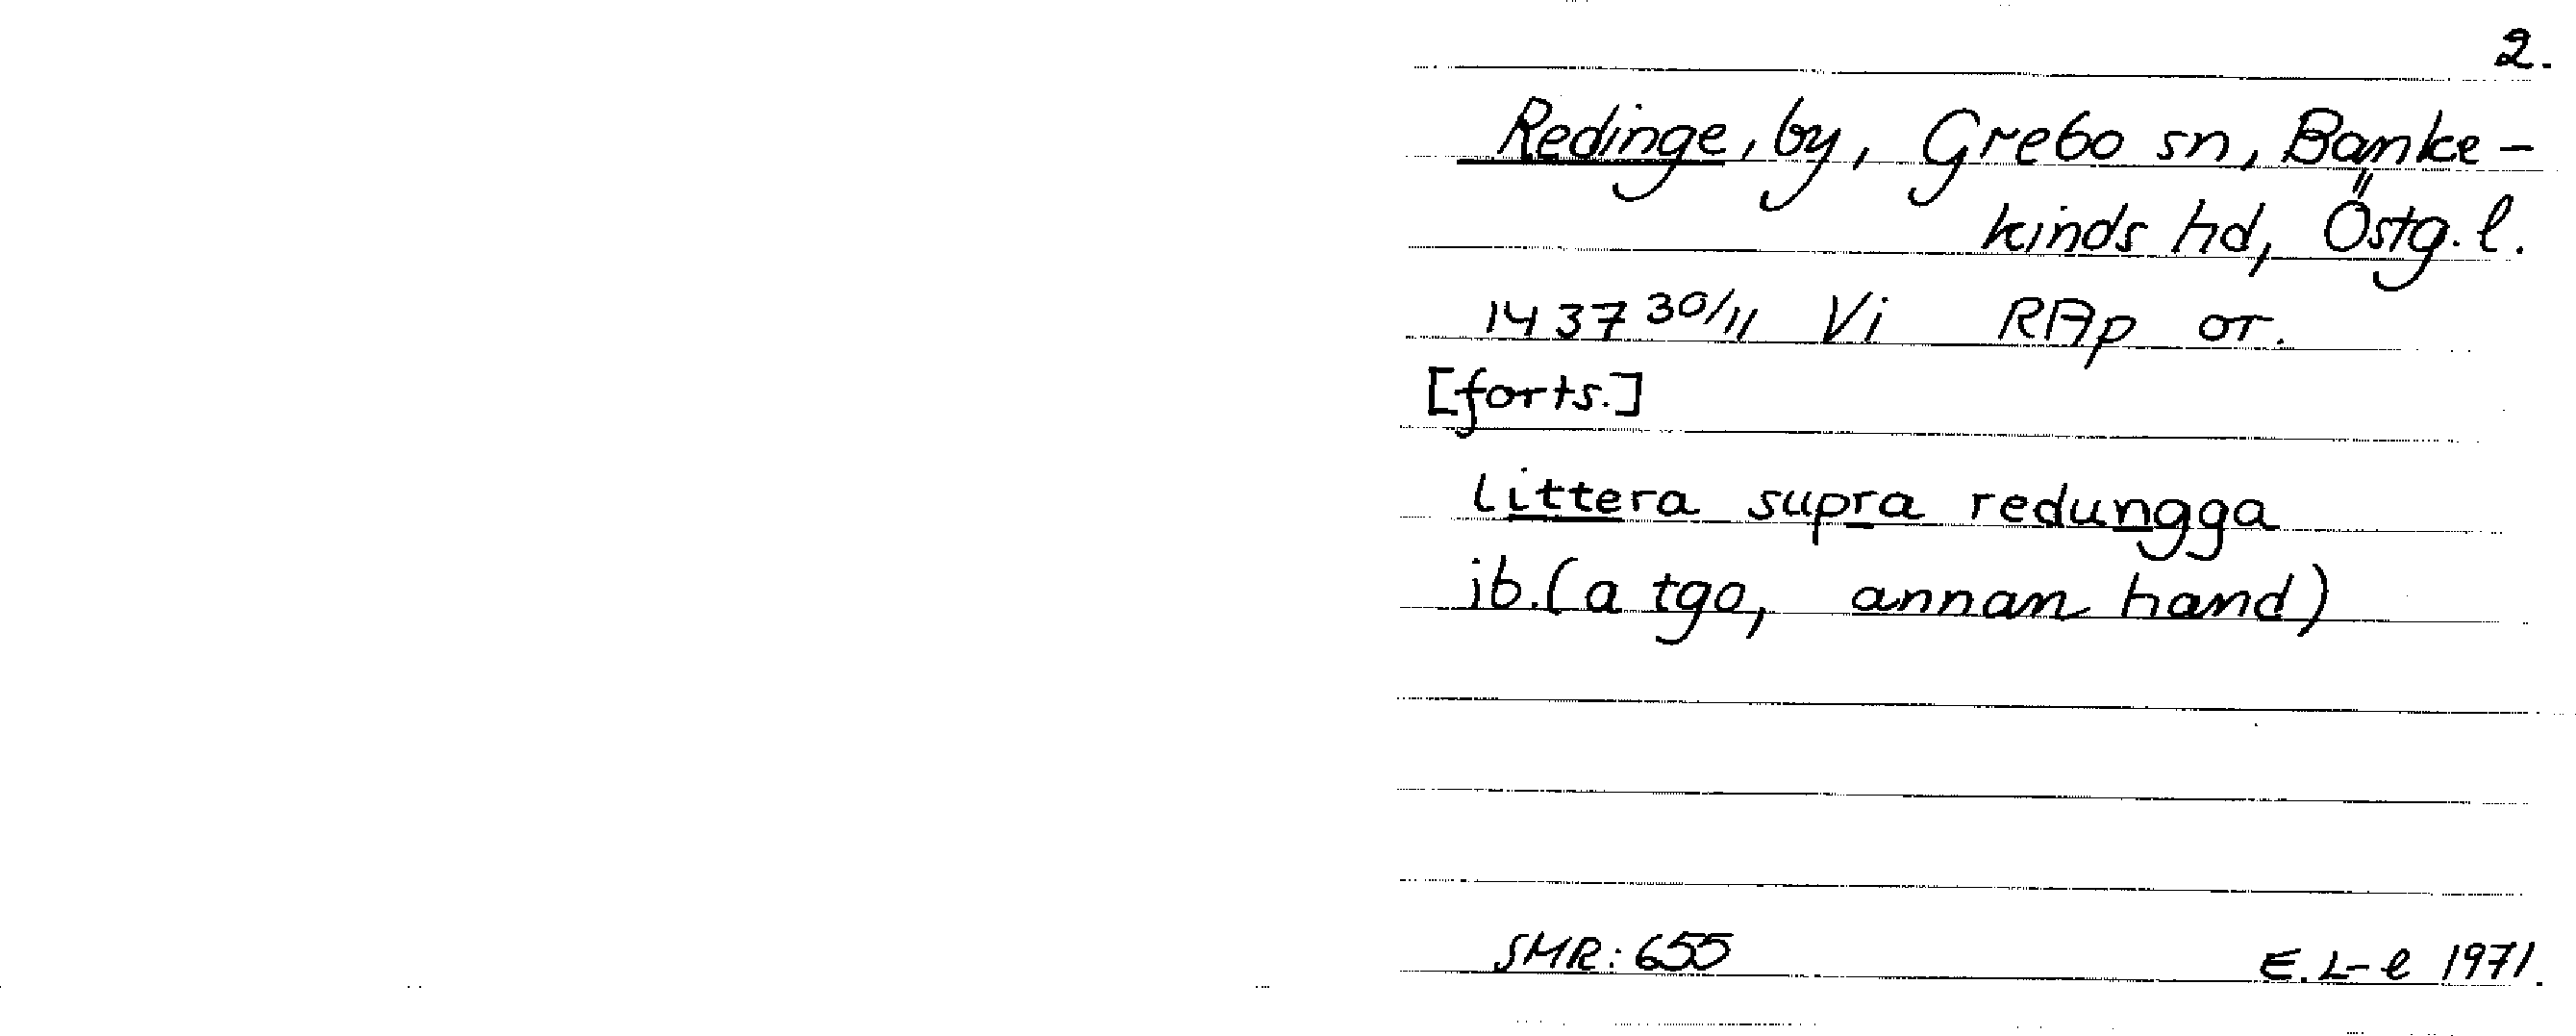 2.
Redinge, by, Grebo sn, Banke-
kinds hd, Östg. l.
1437 30/11 Vi RAp or.
[forts.]
littera supra redungga
ib. (a tgo, annan hand)
SMR: 655 E. L-e 1971.